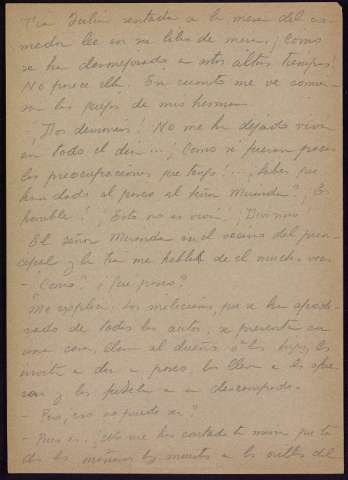 Tía Julia sentada a la mesa del co-
medor lee en su libro de misa. ¡Como
se ha desmejorado en estos últimos tiempos!
No parece ella. En cuanto me ve comien-
zan las quejas de mis hermanos.
¡Dos demonios! No me ha dejado vivir
en todo el día... ¡Como si fueran pocas
las preocupaciones que tengo!... ¿Sabes que
han dado el paseo al señor Miranda? ¡Es
horrible! ¡Esto no es vivir, ¡Dios mío!
El señor Miranda es el vecino del prin-
cipal y la tía me habla de él muchas veces
- ¿Como? ¿Que paseo?
Me explica. Los milicianos, que se han apode-
rado de todos los autos, se presentan en
una casa, llaman al dueño o a los hijos, les
invitan a dar un paseo, los llevan a las afue-
ras y los fusilan en un descampado.
- Pero, ¿eso no puede ser?
- Pues es. ¡Ya me han contado que to-
dos las mañanas hay muertos a las orillas del